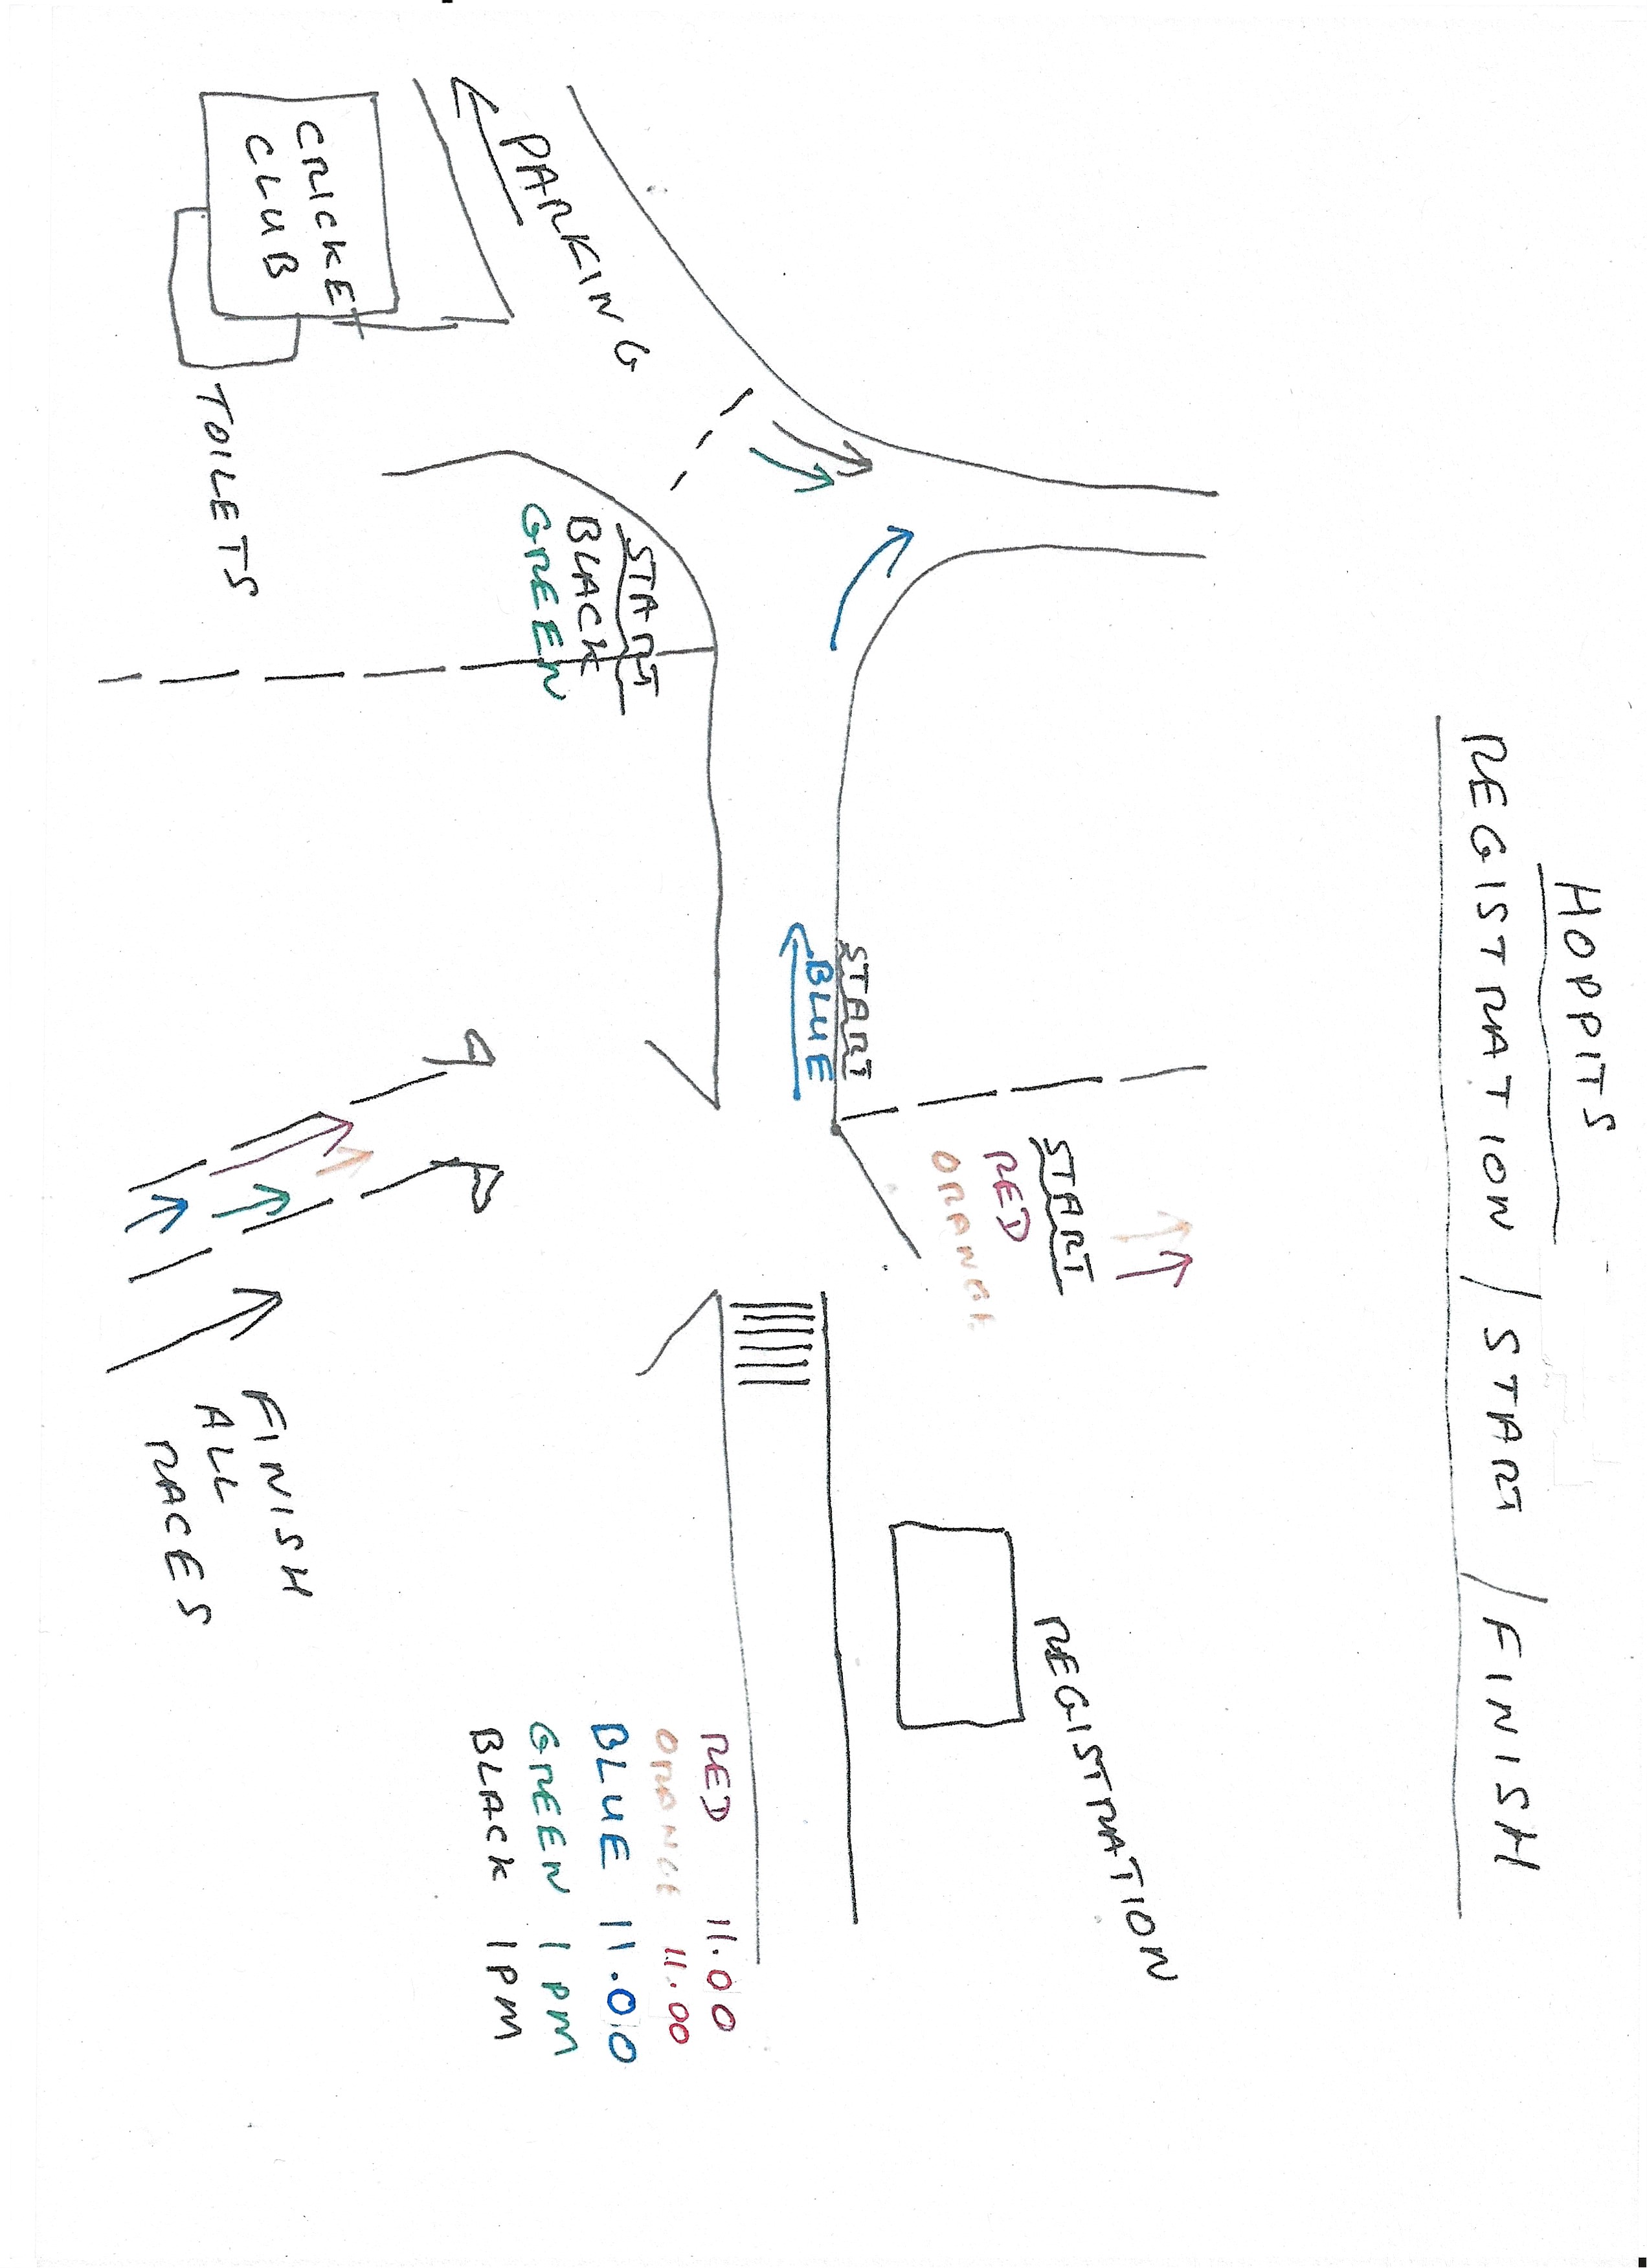 HOPPITS
REGISTRATION / START / FINISH
START
RED
ORANGE
REGISTRATION
START
BLUE
PARKING
START
BLACK
GREEN
CRICKET
CLUB
TOILETS
FINISH
ALL
RACES
RED 11.00
ORANGE 11.00
BLUE 11.00
GREEN 1PM
BLACK 1PM